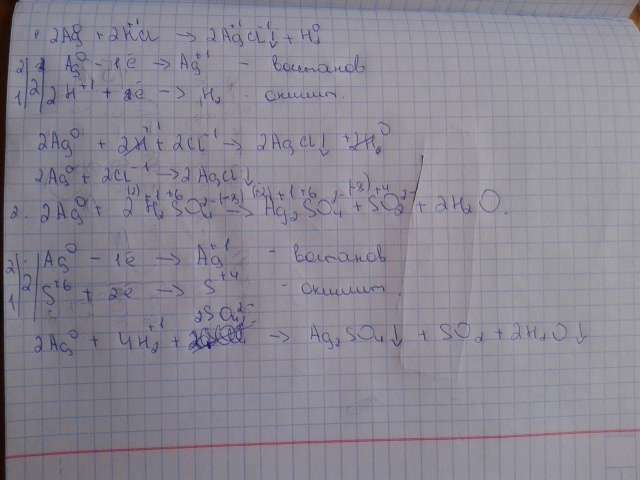 1. 2Ag⁰ + 2H⁺¹Cl → 2Ag⁺¹Cl⁻¹↓ + H₂⁰
2 | 2 | Ag⁰ - 1ē → Ag⁺¹ - востанов
1 | 2 | 2H⁺¹ + 2ē → H₂ - окислит.
2Ag⁰ + 2H⁺¹ + 2Cl⁻¹ → 2AgCl↓ + H₂⁰
2Ag⁰ + 2Cl⁻¹ → 2AgCl↓
2. 2Ag⁰ + 2H₂⁺¹S⁺⁶O₄²⁻ → Ag₂⁺¹S⁺⁶O₄²⁻ + S⁺⁴O₂²⁻ + 2H₂O.
2 | 2 | Ag⁰ - 1ē → Ag⁺¹ - востанов
1 | 2 | S⁺⁶ + 2ē → S⁺⁴ - окислит.
2Ag⁰ + 4H₂⁺¹ + 2SO₄²⁻ → Ag₂SO₄↓ + SO₂ + 2H₂O↓